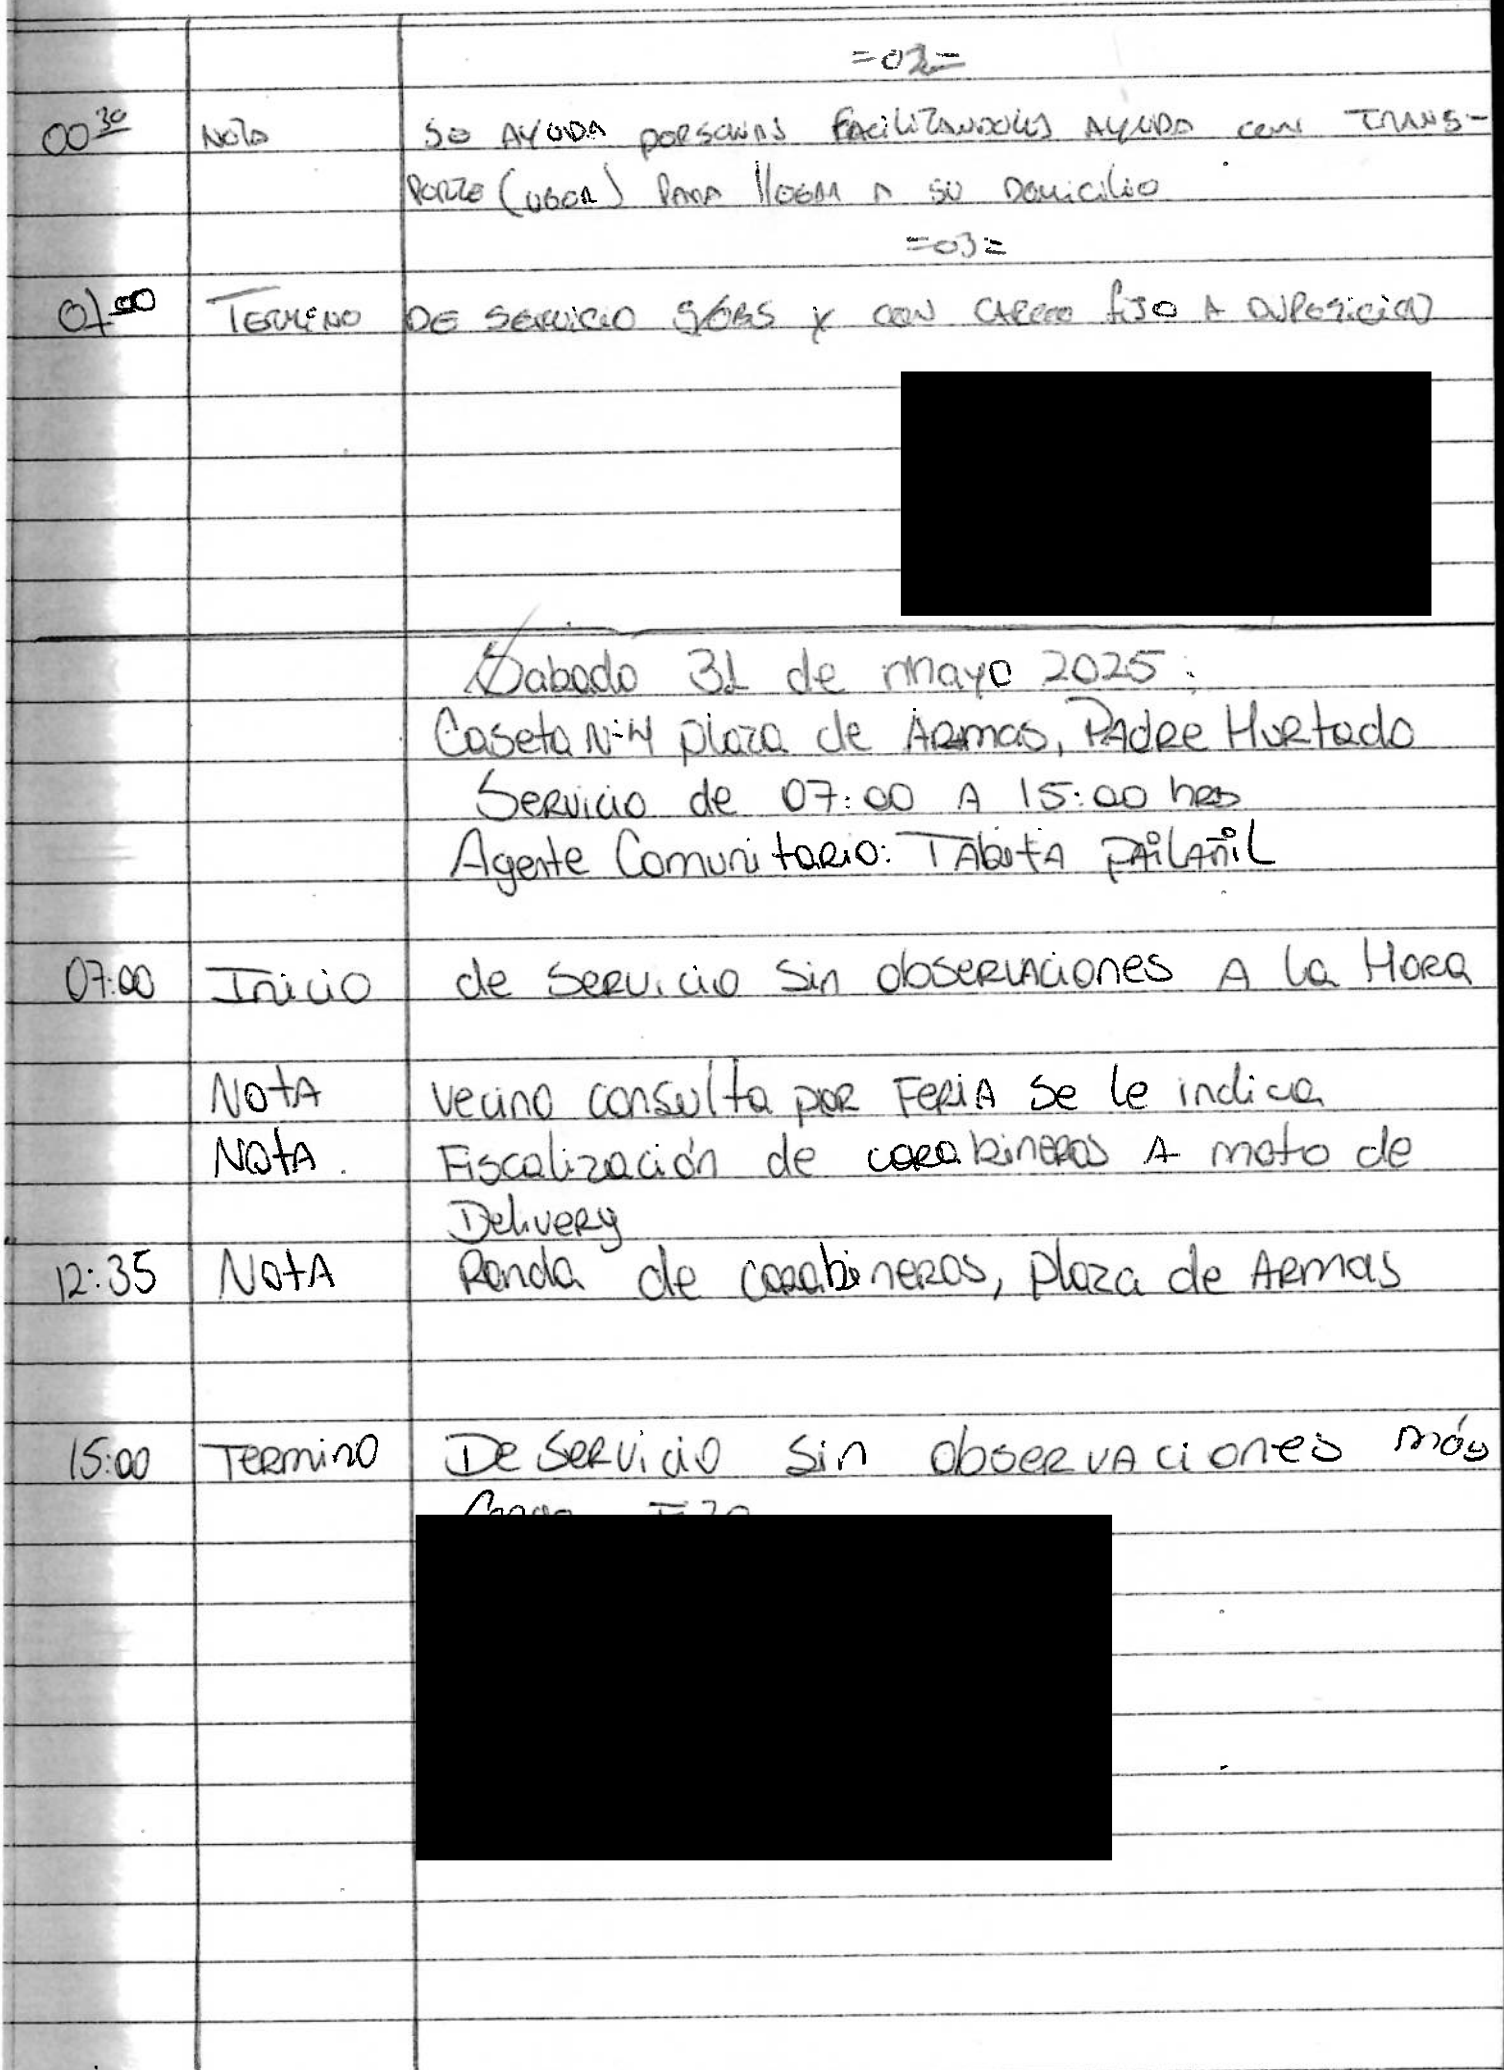 =02=
00 30 Nota Se AYUDA personas FACiLiTANDOLES AYUDA con TRANS-
PORTE (UBER) PARA llegar A SU Domicilio
=03=
07 00 TERMINO DE SERVICIO S/OBS Y CON CARGO fiJO A DISPOSICION
Sabado 31 de mayo 2025:
Caseta N-4 plaza de Armas, PAdRe HuRtado
Servicio de 07:00 A 15:00 hrs
Agente Comunitario: TAbitA PAilAñil
07:00 Inicio de Servicio Sin observaciones A la Hora
NotA vecino consulta por FeriA Se le indica
NotA. Fiscalización de carabineros A moto de
Delivery
12:35 NotA Ronda de carabineros, plaza de Armas
15:00 Termino De Servicio Sin observaciones más